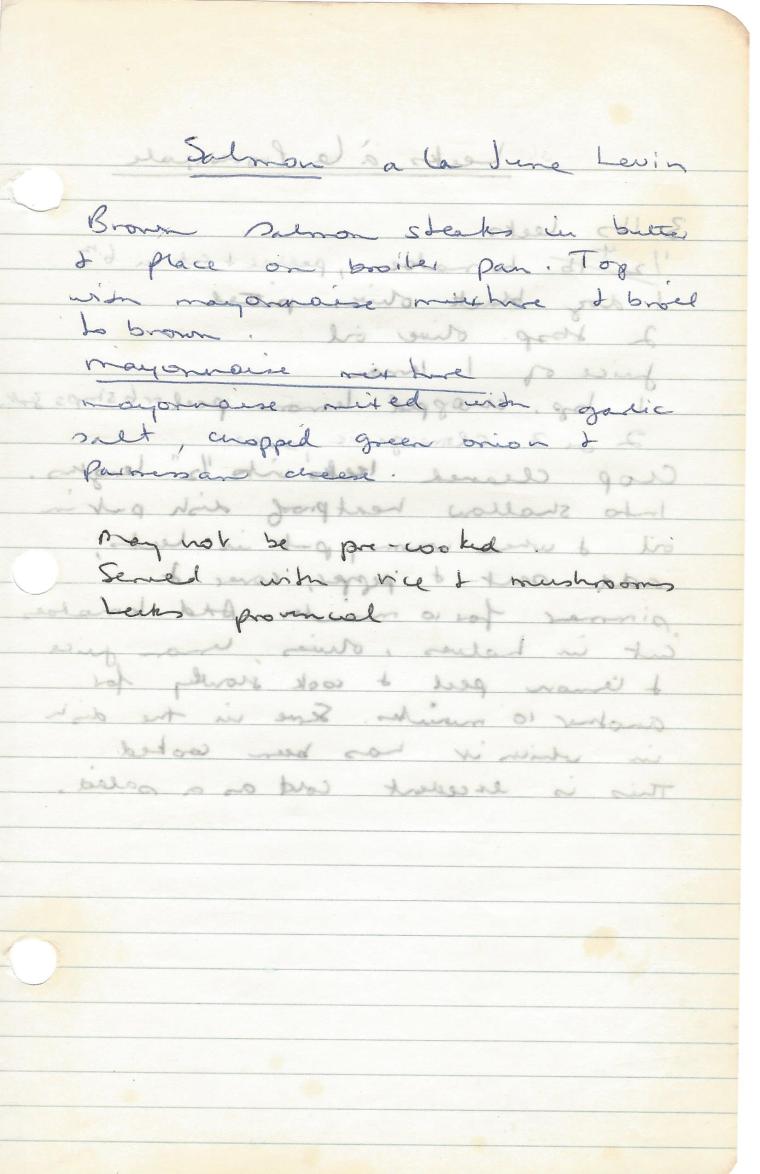 Salmon a la June Levin
Brown salmon steaks in butter
& place on broiler pan. Top
with mayonnaise mixture & broil
to brown.
mayonnaise mixture
mayonnaise mixed with garlic
salt, chopped green onion &
Parmessan cheese.
May not be pre-cooked.
Served with rice & mushrooms
Leeks provincial